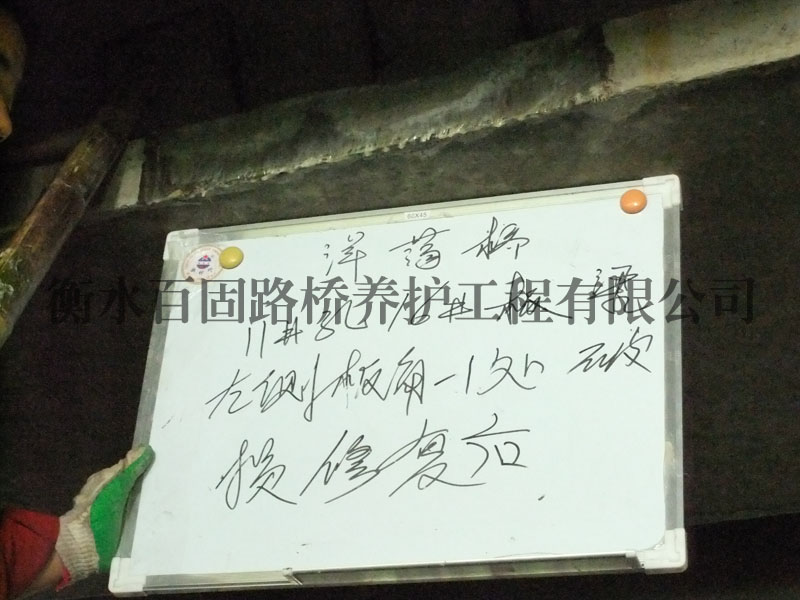 60X45
洋荡桥
衡水百固路桥养护工程有限公司
11#孔 16#板梁
左侧板角-1处破
损修复后